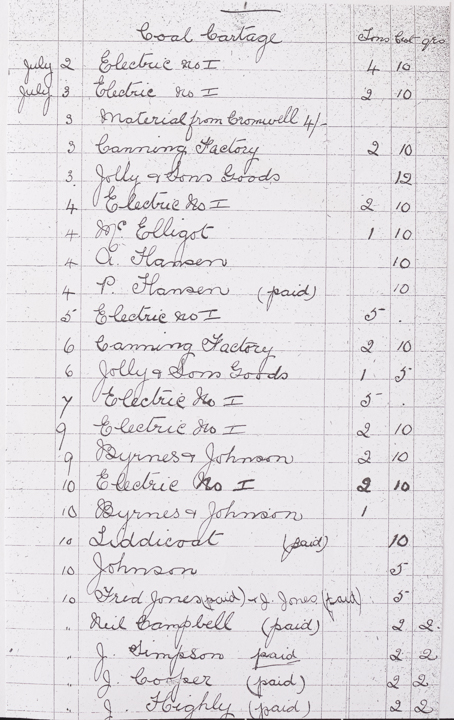 1
Coal Cartage Tons Cwt qrs
July 2 Electric No I 4 10
July 3 Electric No I 2 10
3 Material from Cromwell 4/-
3 Canning Factory 2 10
3. Jolly & Sons Goods 12
4 Electric No I 2 10
4 Mc Elligot 1 10
4 A. Hansen 10
4 P. Hansen (paid) 10
5 Electric No I 5 .
6 Canning Factory 2 10
6 Jolly & Sons Goods 1 5
7 Electric No I 5 .
9 Electric No I 2 10
9 Byrnes & Johnson 2 10
10 Electric No I 2 10
10 Byrnes & Johnson 1
10 Liddicoat (paid) 10
10 Johnson 5
10 Fred Jones (paid) & J. Jones (paid) 5
" Neil Campbell (paid) 2 2
" J. Simpson paid 2 2
" J. Cooper (paid) 2 2
" J. Highly (paid) 2 2